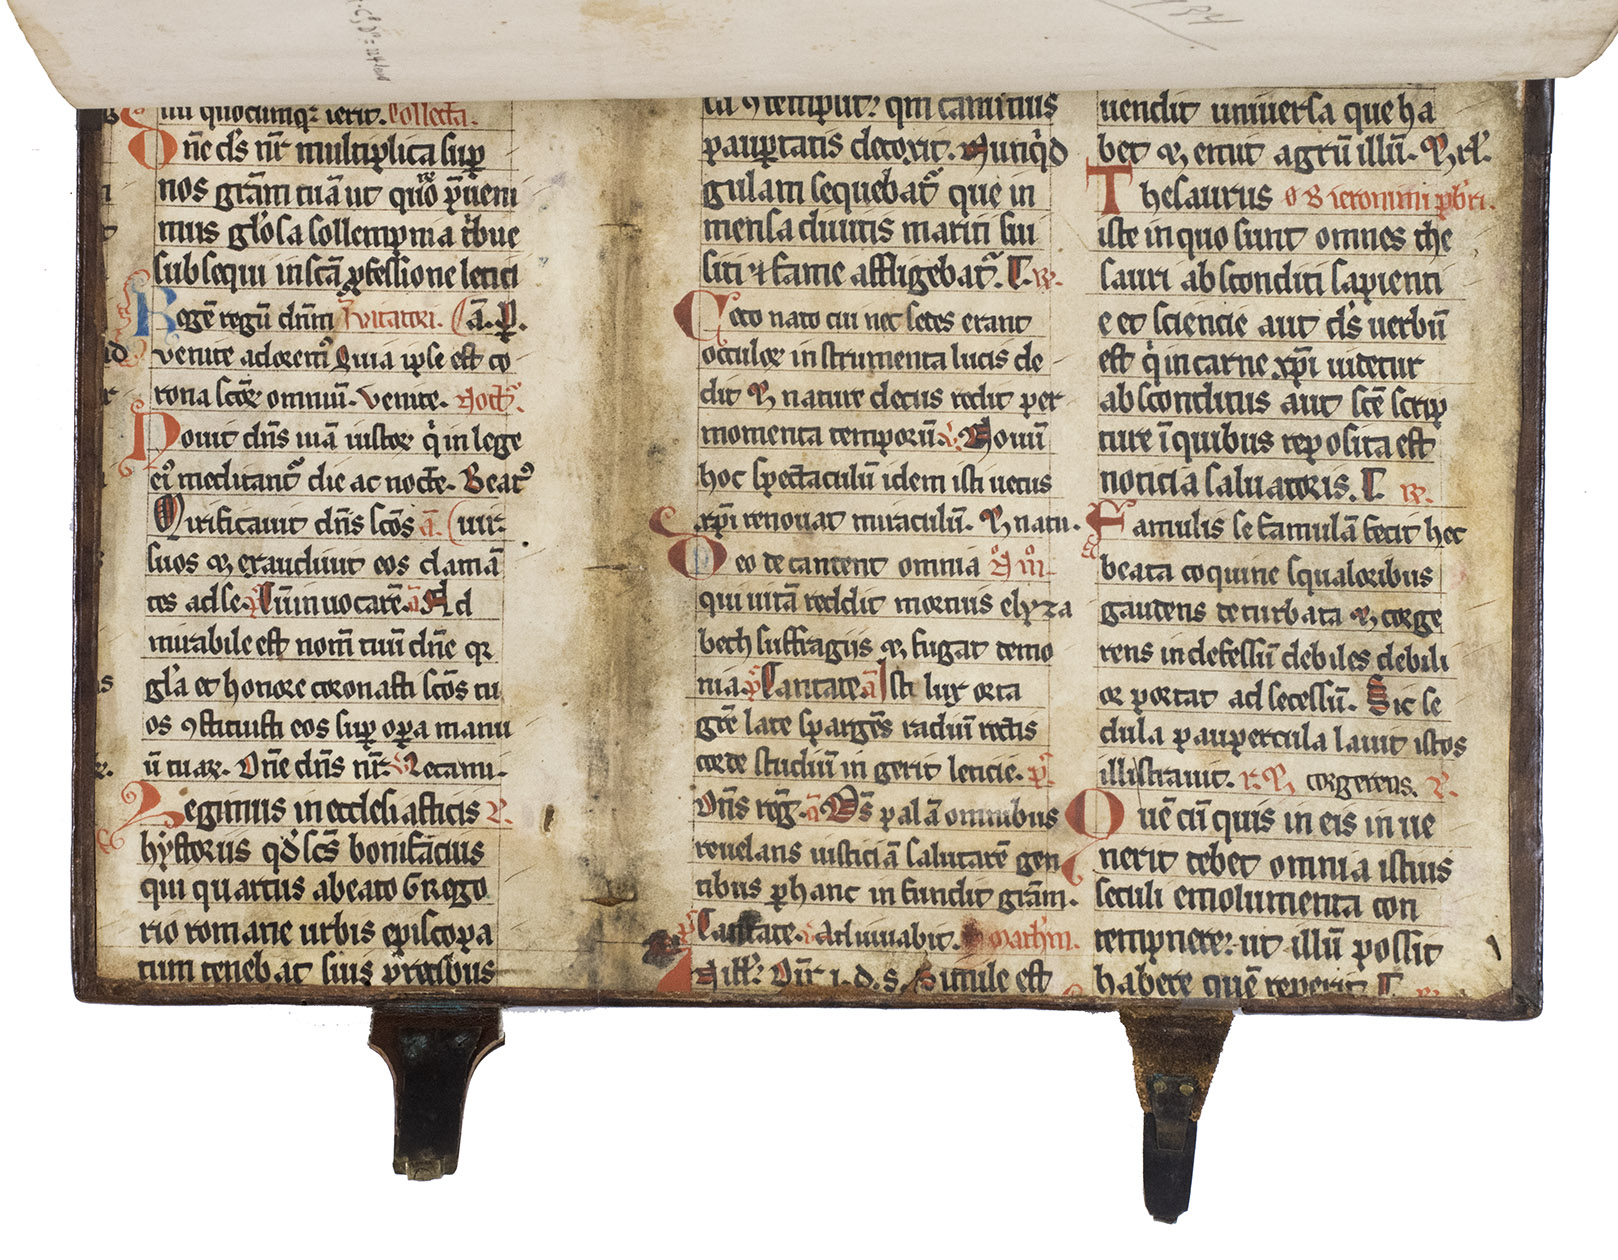 quocumque ierit. Collecta.
One ds nr multiplica sup
nos gram tuam ut quor pveni
mus glosa sollempnia tbue
subsequi in sca pfessione letici
Rege regu dnm Invitatori. a. p.
venite adorem Quia ipse est co
rona scor omniu. Venite. Noct.
Novit dns viam iustor q in lege
ei meditant die ac nocte. Beat
Mirificavit dns scos a. vir.
suos et exaudivit eos claman
tes ad se. p Cum invocare a Ad
mirabile est nom tuu dne qr
gla et honore coronasti scos tu
os 9stituisti eos sup opa manu
u tuar. Dne dns nr. Letami.
Legimus in ecclesiasticis R.
hystoriis qd scs bonifacius
qui quartus a beato Grego
rio romane urbis episcopa
tum tenebat suis precibus
9tempsit: qm carnius
paupertatis decoxit. Nunqd
gulam sequebat que in
mensa divitis mariti sui
siti et fame affligebat. R.
Ceco nato cui nec sedes erant
oculor instrumenta lucis de
dit et nature decus redit per
momenta temporu. v Novu
hoc spectaculu idem isti vetus
xpi renovat miraculu. Et natu.
Deo decantent omnia
qui vita reddit mortuis elyza
beth suffragiis et fugat demo
nia. p Cantate a Isti lux orta
gre late sparges radiu rectis
corde studiu in gerit leticie. p
Dns reg. a Ds palam omnibus
revelans iusticia salutare gen
tibus per hanc infundit gram.
Cantate. Adiuvabit.
Dixit i. d. s. Simile est
vendit universa que ha
bet et emit agru illu. Et rl.
Thesaurus o Ieronimi pbri.
iste in quo sunt omnes the
sauri absconditi sapienti
e et sciencie aut ds verbu
est q in carne xpi videtur
absconditus aut sce scrip
ture in quibus reposita est
noticia salvatoris. R.
Famulis se famula fecit hec
beata coquine squaloribus
gaudens deturbata et corge
rens indefessu debiles debili
or portat ad secessu. Sic se
dula paupercula lavit istos
illustravit. R. Et corgerens. R.
Que cu quis in eis in ve
nerit debet omnia istius
seculi emolumenta con
tempnere: ut illu possit
habere que reperit